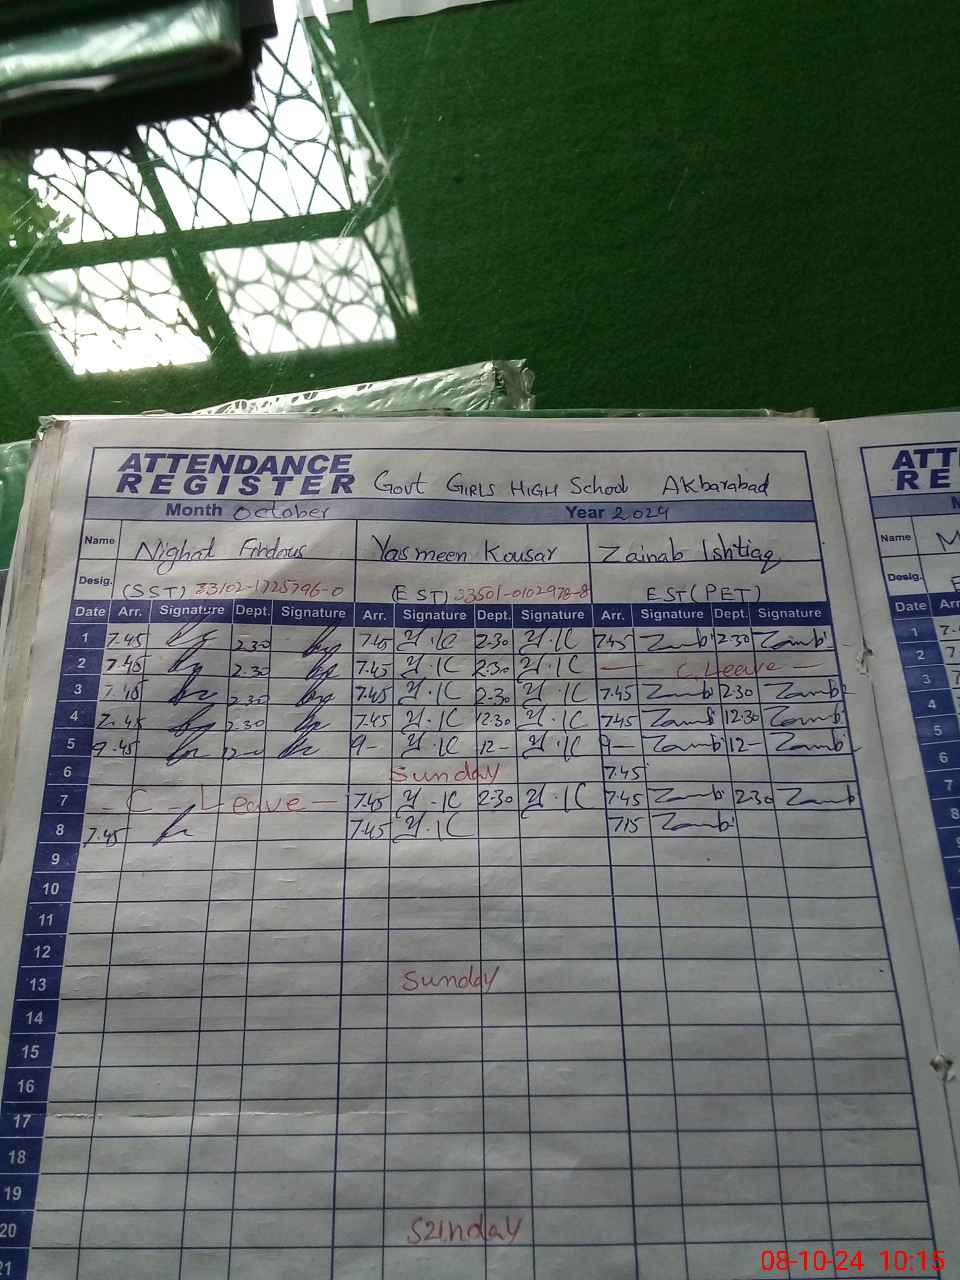 ATTENDANCE REGISTER Govt GIRLS HIGH School Akbarabad
Month October Year 2024
Name Nighat Firdous Yasmeen Kousar Zainab Ishtiaq
Desig. (SST) 33102-1725796-0 (EST) 33501-0102978-8 EST(PET)
Date Arr. Signature Dept. Signature Arr. Signature Dept. Signature Arr. Signature Dept. Signature
1 7.45 2.30 7.45 Y.K 2.30 Y.K 7.45 Zainab 2.30 Zainab
2 7.45 2.30 7.45 Y.K 2.30 Y.K — C.Leave —
3 7.45 2.30 7.45 Y.K 2.30 Y.K 7.45 Zainab 2.30 Zainab
4 7.45 2.30 7.45 Y.K 12.30 Y.K 7.45 Zainab 12.30 Zainab
5 9.45 9- Y.K 12- Y.K 9- Zainab 12- Zainab
6 Sunday 7.45
7 - C - Leave - 7.45 Y.K 2.30 Y.K 7.45 Zainab 2.30 Zainab
8 7.45 7.45 Y.K 7.15 Zainab
9
10
11
12
13 Sunday
14
15
16
17
18
19
20 Sunday
21
ATT
RE
Name M
Desig.
Date Arr
1 7
2 7
3
4
5
6
7
8
9
08-10-24 10:15